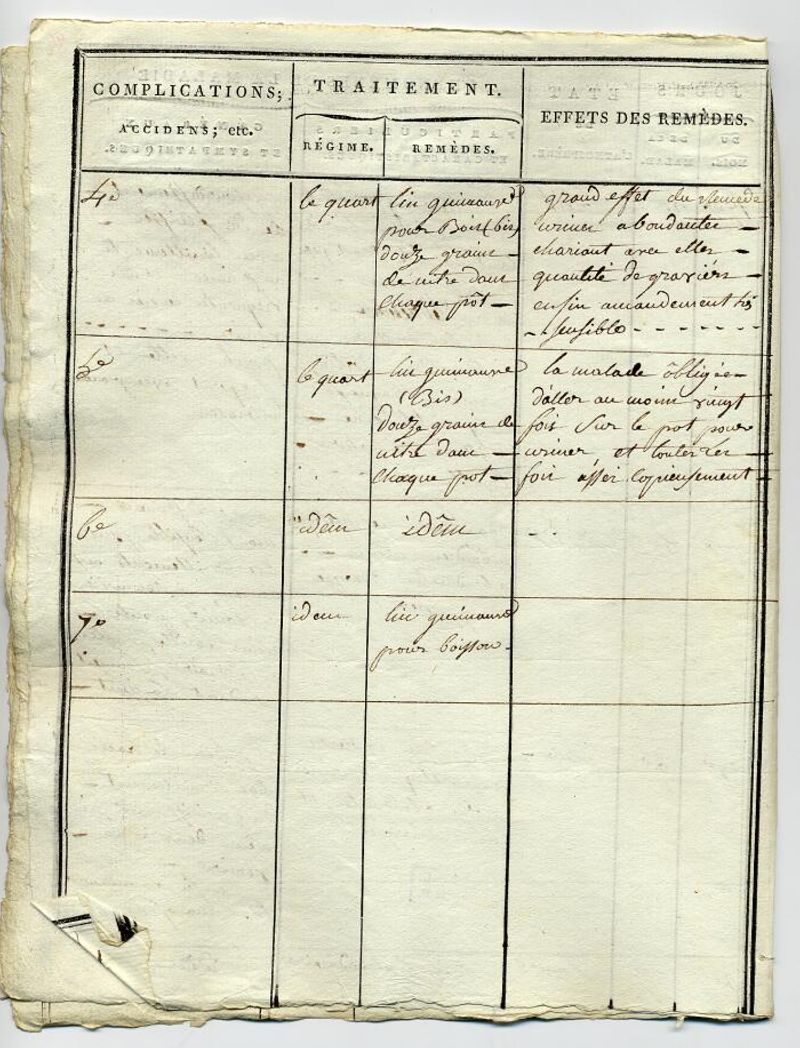 COMPLICATIONS;
ACCIDENS; etc.
TRAITEMENT.
RÉGIME.
REMÈDES.
EFFETS DES REMÈDES.
4e
le quart
lin guimauve
pour Bois (bis)
douze grains
de nitre dans
chaque pôt
grand effet du Remede
urines abondantes
chariant avec elles
quantité de graviérs
enfin amandement très
sensible
5e
le quart
lin guimauve
(Bis)
douze grains de
nitre dans
chaque pot
la malade ôbligée
d'aller au moins vingt
fois sur le pot pour
uriner, et toutes les
fois assés copieusement
6e
idêm
idêm
7e
idem
lin guimauve
pour boisson